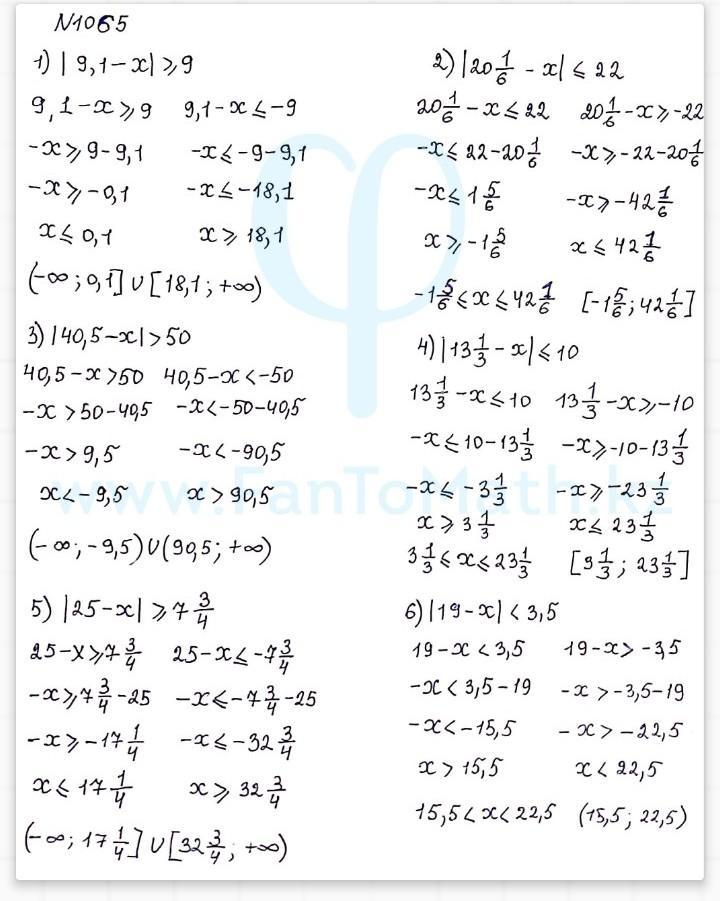 N1065
1) | 9,1-x| ⩾ 9
9,1-x ⩾ 9   9,1-x ⩽ -9
-x ⩾ 9-9,1   -x ⩽ -9-9,1
-x ⩾ -0,1   -x ⩽ -18,1
x ⩽ 0,1   x ⩾ 18,1
(-∞; 0,1] ∪ [18,1; +∞)
2) |20 1/6 - x| ⩽ 22
20 1/6 - x ⩽ 22   20 1/6 - x ⩾ -22
-x ⩽ 22-20 1/6   -x ⩾ -22-20 1/6
-x ⩽ 1 5/6   -x ⩾ -42 1/6
x ⩾ -1 5/6   x ⩽ 42 1/6
-1 5/6 ⩽ x ⩽ 42 1/6   [-1 5/6; 42 1/6]
3) |40,5-x| > 50
40,5-x > 50   40,5-x < -50
-x > 50-40,5   -x < -50-40,5
-x > 9,5   -x < -90,5
x < -9,5   x > 90,5
(-∞; -9,5) ∪ (90,5; +∞)
4) |13 1/3 - x| ⩽ 10
13 1/3 - x ⩽ 10   13 1/3 - x ⩾ -10
-x ⩽ 10-13 1/3   -x ⩾ -10-13 1/3
-x ⩽ -3 1/3   -x ⩾ -23 1/3
x ⩾ 3 1/3   x ⩽ 23 1/3
3 1/3 ⩽ x ⩽ 23 1/3   [3 1/3; 23 1/3]
5) |25-x| ⩾ 7 3/4
25-x ⩾ 7 3/4   25-x ⩽ -7 3/4
-x ⩾ 7 3/4 - 25   -x ⩽ -7 3/4 - 25
-x ⩾ -17 1/4   -x ⩽ -32 3/4
x ⩽ 17 1/4   x ⩾ 32 3/4
(-∞; 17 1/4] ∪ [32 3/4; +∞)
6) |19-x| < 3,5
19-x < 3,5   19-x > -3,5
-x < 3,5-19   -x > -3,5-19
-x < -15,5   -x > -22,5
x > 15,5   x < 22,5
15,5 < x < 22,5   (15,5; 22,5)
www.FanToMath.kz